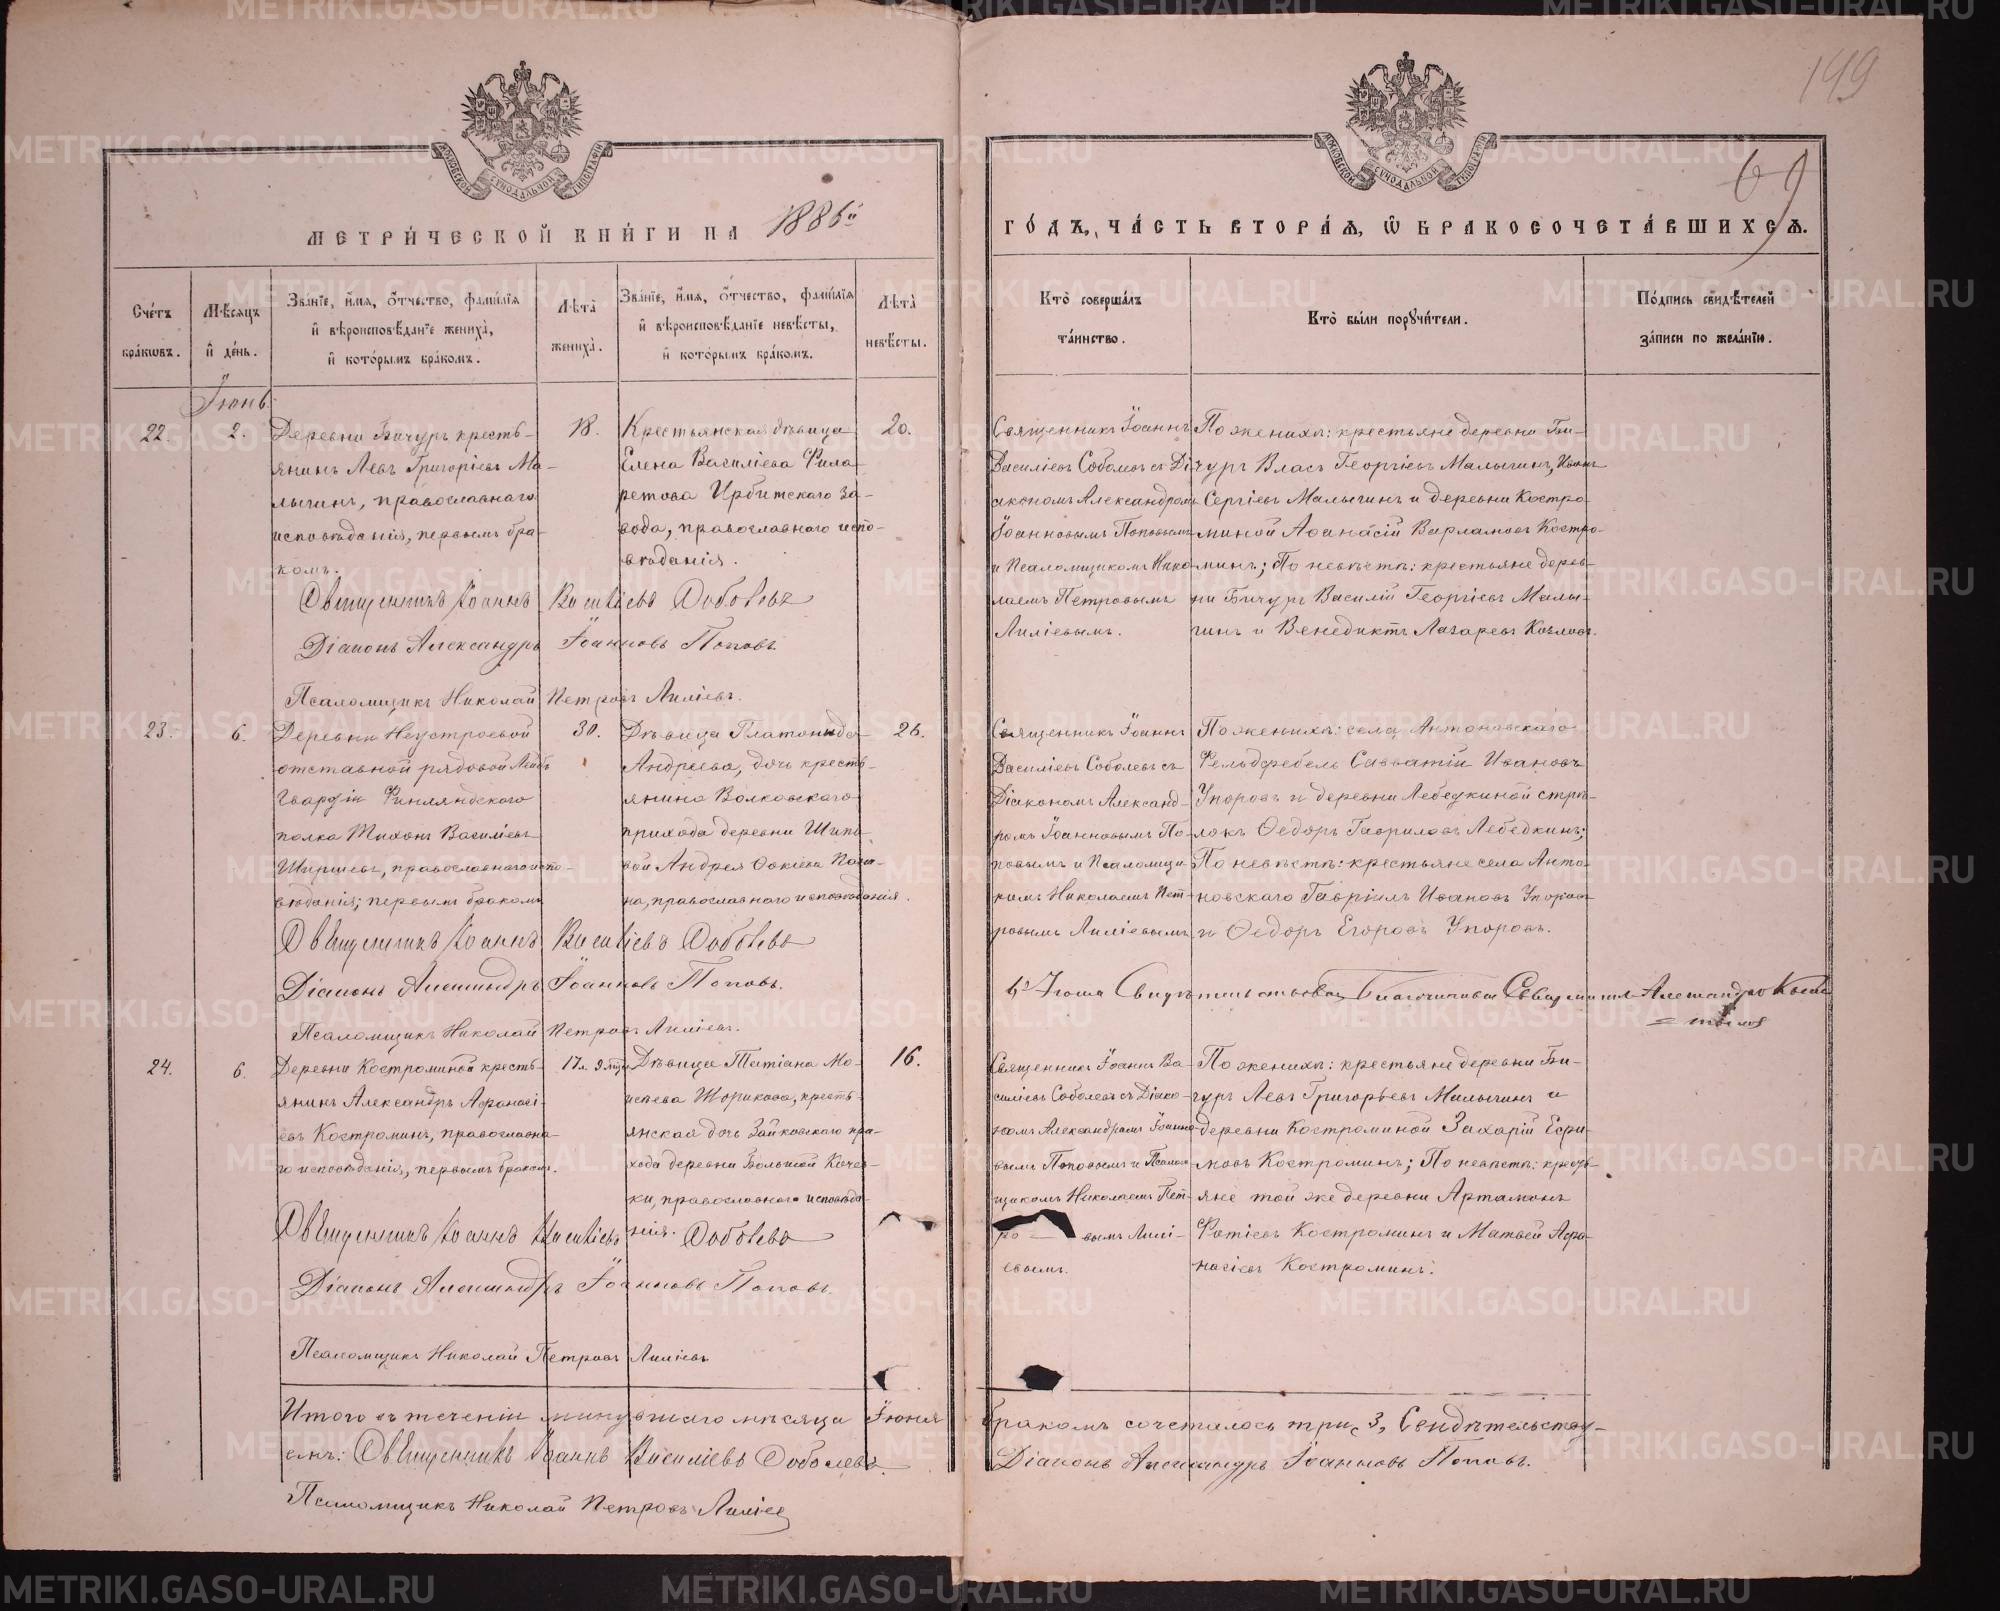 199
69
МОСКОВСКОЙ СѴНОДАЛЬНОЙ ТИПОГРАФІИ
МОСКОВСКОЙ СѴНОДАЛЬНОЙ ТИПОГРАФІИ
МЕТРИ́ЧЕСКОЙ КНИ́ГИ НА 1886й
ГО́ДЪ, ЧА́СТЬ ВТОРА́Я, Ѽ БРАКОСОЧЕТА́ВШИХСЯ.
Сче́тъ бра́ковъ.
Мѣ́сяцъ и҆ де́нь.
Зва́нїе, и҆́мя, о҆́тчество, фами́лїя и҆ вѣроисповѣ́данїе жениха̀, и҆ кото́рымъ бра́комъ.
Лѣ́та жениха̀.
Зва́нїе, и҆́мя, о҆́тчество, фами́лїя и҆ вѣроисповѣ́данїе невѣ́сты, и҆ кото́рымъ бра́комъ.
Лѣ́та невѣ́сты.
Кто̀ соверша́лъ та́инство.
Кто̀ бы́ли поручи́тели.
По́дпись свидѣ́телей за́писи по жела́нїю.
Іюнь
22.
2.
Деревни Бичуръ кресть-
янинъ Левъ Григоріевъ Ма-
лыгинъ, православнаго
исповѣданія, первымъ бра-
комъ.
18.
Крестьянская дѣвица
Елена Василіева Фила-
ретова Ирбитскаго за-
вода, православнаго испо-
вѣданія.
20.
Священникъ Іоаннъ
Василіевъ Соболевъ съ Ді-
акономъ Александромъ
Іоанновымъ Поповымъ
и Псаломщикомъ Нико-
лаемъ Петровымъ
Лиліевымъ.
По женихѣ: крестьяне деревни Би-
чуръ Власъ Георгіевъ Малыгинъ, Иванъ
Сергіевъ Малыгинъ и деревни Костро-
миной Аѳанасій Варламовъ Костро-
минъ; По невѣстѣ: крестьяне дерев-
ни Бичуръ Василій Георгіевъ Малы-
гинъ и Венедиктъ Лазаревъ Козловъ.
Священникъ Іоаннъ Василіевъ Соболевъ
Діаконъ Александръ Іоанновъ Поповъ
Псаломщикъ Николай Петровъ Лиліевъ.
23.
6.
Деревни Неустроевой
отставной рядовой Лейбъ
Гвардіи Финляндского
полка Тихонъ Василіевъ
Ширшевъ, православнаго испо-
вѣданія; первымъ бракомъ
30.
Дѣвица Платонида
Андреева, дочь кресть-
янина Волковскаго
прихода деревни Шипо-
вой Андрея
на, православнаго исповѣданія.
26.
Священникъ Іоаннъ
Василіевъ Соболевъ съ
Діакономъ Александ-
ромъ Іоанновымъ По-
повымъ и Псаломщи-
комъ Николаемъ Пет-
ровымъ Лиліевымъ
По женихѣ: села Антоновскаго
Фельдфебель Савватій Ивановъ
Упоровъ и деревни Лебедкиной стрѣ-
локъ Ѳедоръ Гавриловъ Лебедкинъ;
По невѣстѣ: крестьяне села Анто-
новскаго Гавріилъ Ивановъ Упоровъ
и Ѳедоръ Егоровъ Упоровъ.
Священникъ Іоаннъ Василіевъ Соболевъ
Діаконъ Александръ Іоанновъ Поповъ.
Свидѣтельствовалъ Благочинный Священникъ Александръ
Псаломщикъ Николай Петровъ Лиліевъ.
24.
6.
Деревни Костроминой кресть-
янинъ Александръ Аѳанасі-
евъ Костроминъ, православна-
го исповѣданія, первымъ бракомъ.
17 л. 9 мѣс.
Дѣвица Татіана Мо-
исеева Шорикова, кресть-
янская дочь Зайковскаго при-
хода деревни Большой Кочев-
ки, православнаго исповѣда-
нія.
16.
Священникъ Іоаннъ Ва-
силіевъ Соболевъ съ Діако-
номъ Александромъ Іоанно-
вымъ Поповымъ и Псалом-
щикомъ Николаемъ Пет-
ро вымъ Лилі-
евымъ.
По женихѣ: крестьяне деревни Би-
чуръ Левъ Григорьевъ Малыгинъ и
деревни Костроминой Захарій Ефи-
мовъ Костроминъ; По невѣстѣ: кресть-
яне той же деревни Артамонъ
Фотіевъ Костроминъ и Матвей Аѳа-
насіевъ Костроминъ.
Священникъ Іоаннъ Василіевъ Соболевъ
Діаконъ Александръ Іоанновъ Поповъ.
Псаломщикъ Николай Петровъ Лиліевъ
Итого въ теченіи минувшаго мѣсяца Іюня бракомъ сочеталось три, 3, Свидѣтельству-
емъ: Священникъ Іоаннъ Василіевъ Соболевъ. Діаконъ Александръ Іоанновъ Поповъ.
Псаломщикъ Николай Петровъ Лиліев
METRIKI.GASO-URAL.RU